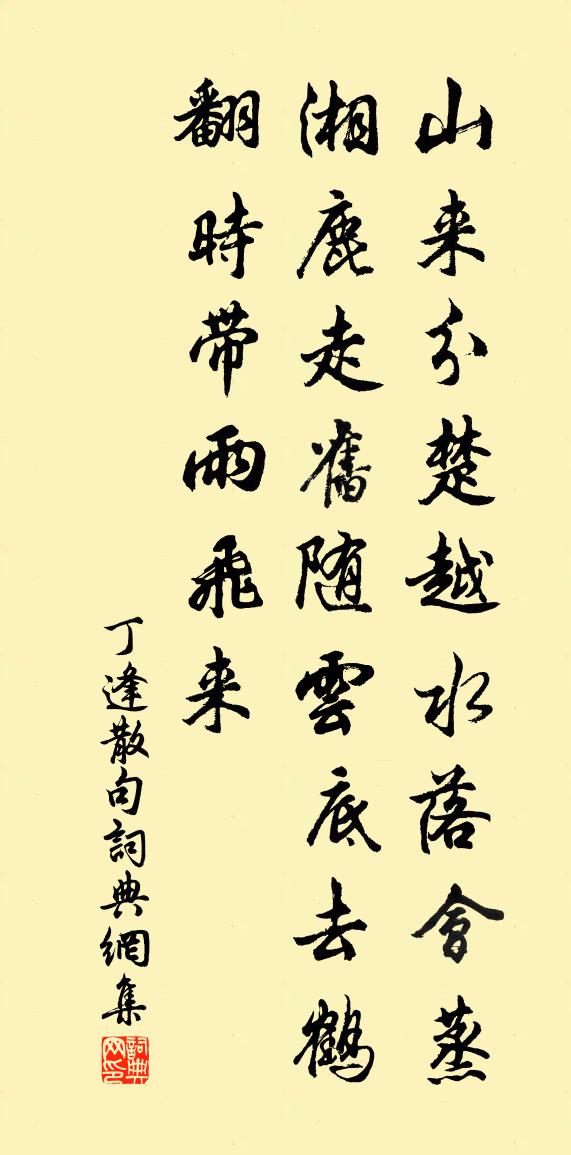 山来分楚越水落會蒸
湘鹿走舊随雲底去鶴
翻時带雨飛来
丁逢散句詞典網集
詞典网印